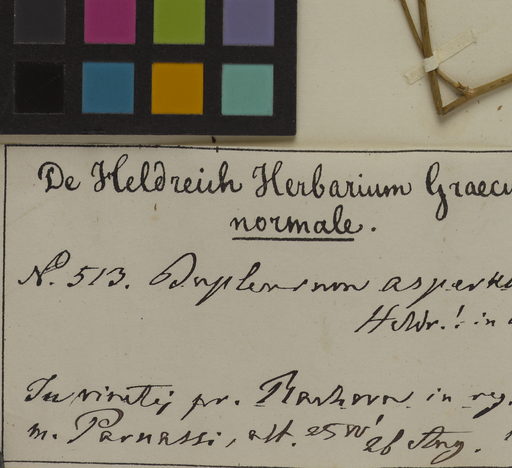 De Heldreich Herbarium Graecu
normale.
No. 513. Bupleurum asper
Heldr.! in
In vinetis pr. in reg.
m. Parnassi, alt. 2500' 26 Aug.